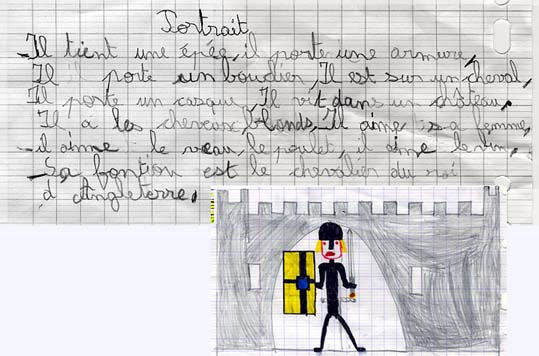 Portrait
-Il tient une épée, il porte une armure,
Il porte un bouclier, Il est sur un cheval,
Il porte un casque, Il vit dans un château,
Il a les cheveux blonds, Il aime sa femme,
-il aime le veau, le poulet, il aime le vin,
-Sa fontion est le chevalier du roi
d'Angleterre,